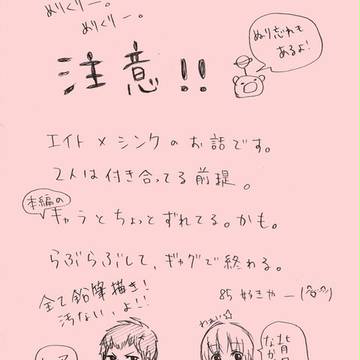 めりくりー。
めりくりー。
ぬり忘れも
あるよ!
注意!!
エイト×シンクのお話です。
2人は付き合ってる前提。
本編の
キャラとちょっとずれてる。かも。
らぶらぶして、ギャグで終わる。
全て鉛筆描き!
汚ない、よ!!
85 好きやー
わぁい☆